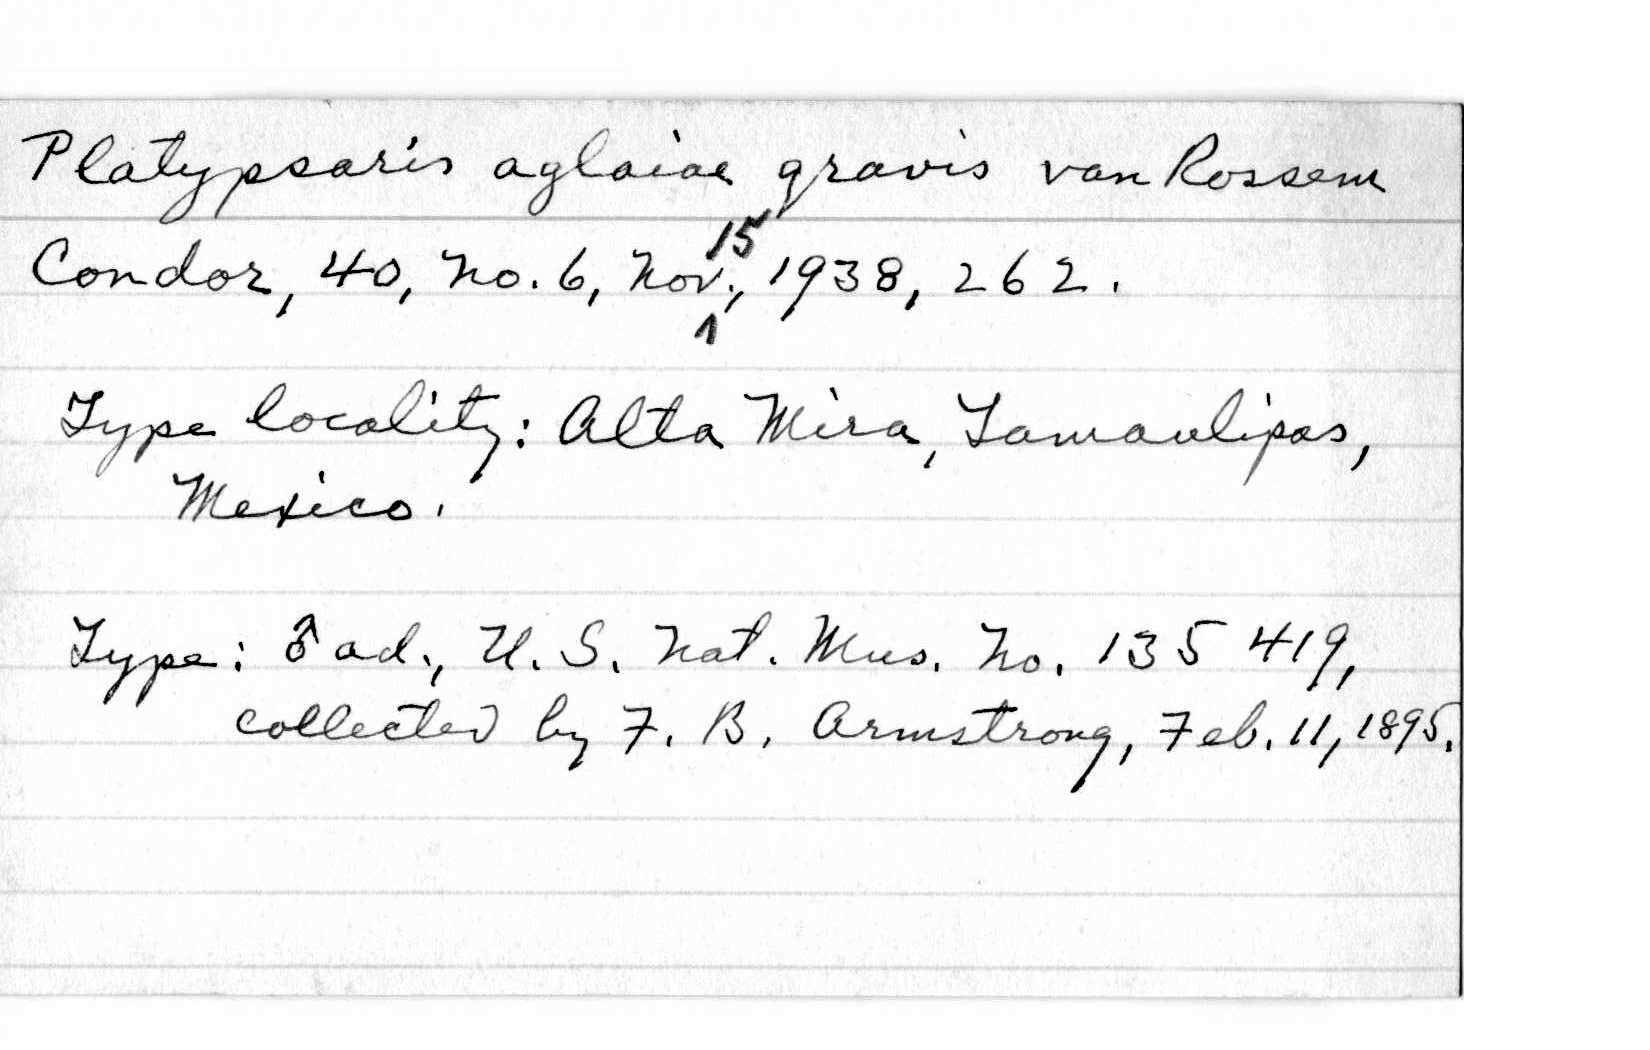 Platypsaris aglaiae gravis van Rossem
Condor, 40, no. 6, Nov. 15, 1938, 262.
Type locality: Alta Mira, Tamaulipas,
Mexico.
Type: ♂ ad., U.S. Nat. Mus. No. 135419,
collected by F. B. Armstrong, Feb. 11, 1895.